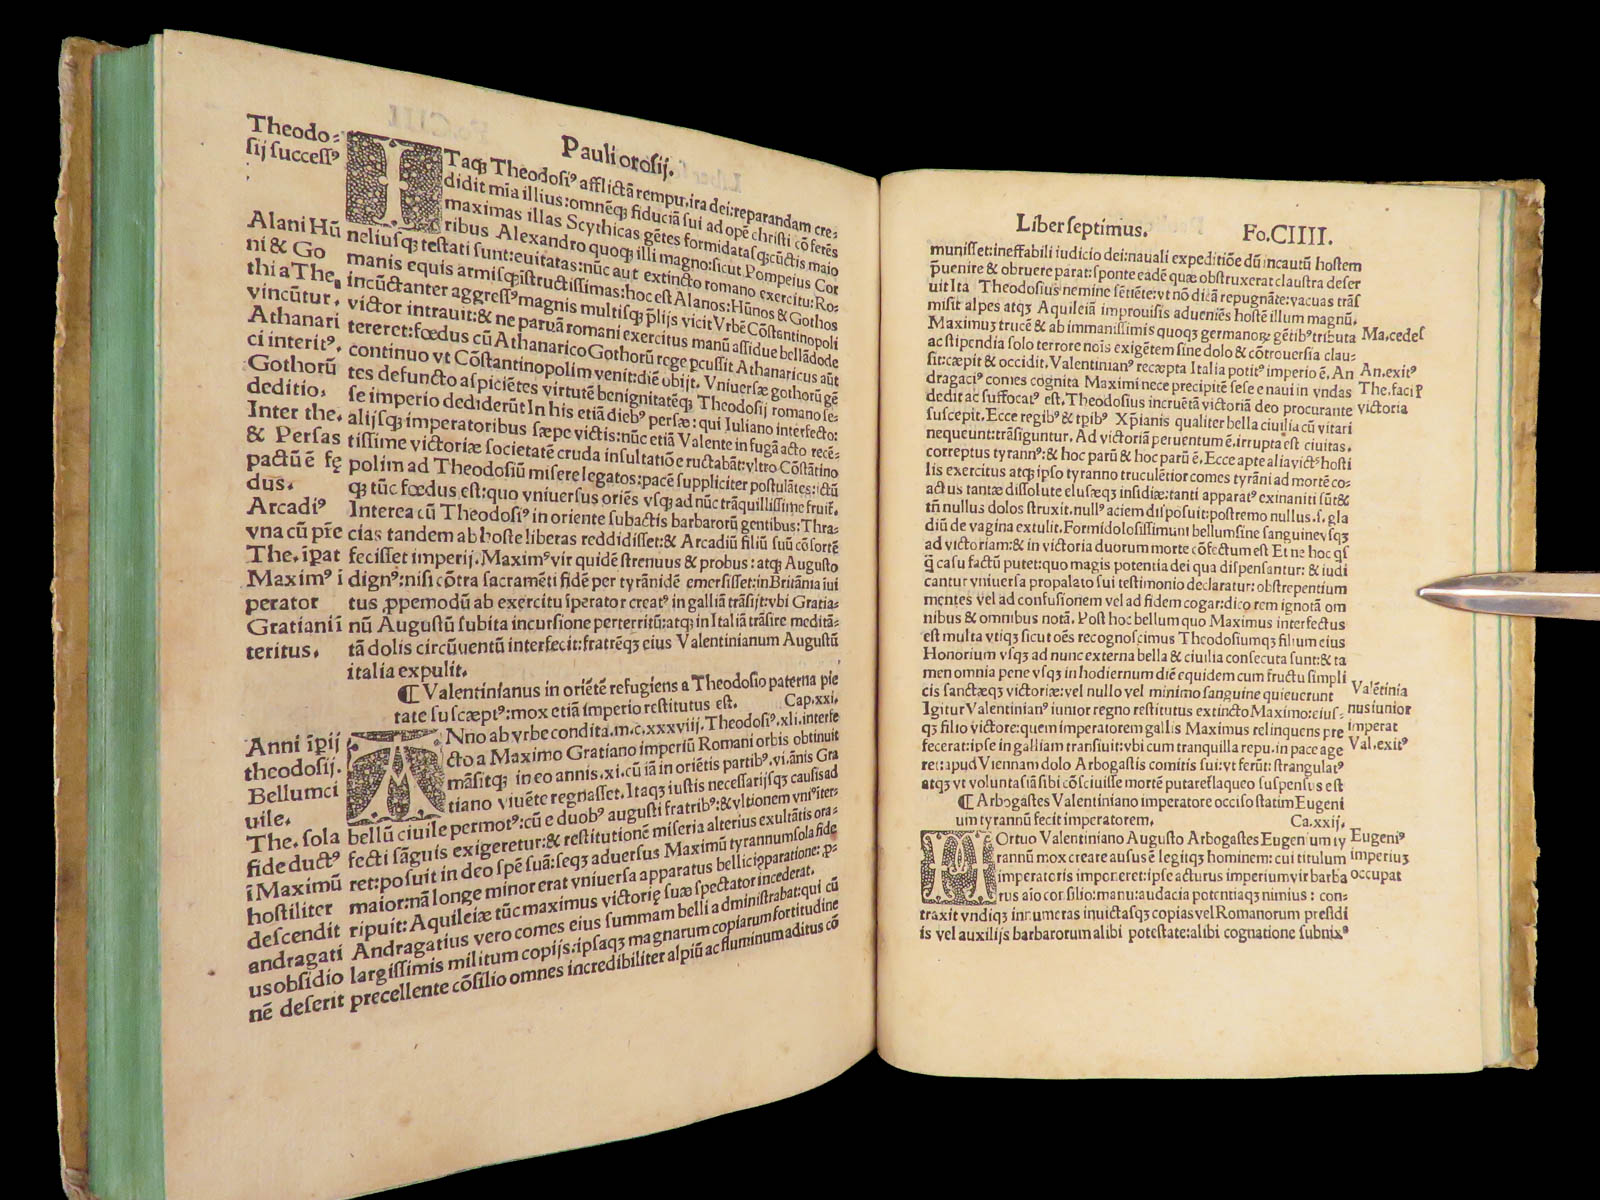 Pauli orosij.
Theodo⸗
sij successꝰ
Alani Hũ
ni & Go
thi a The
vincũtur.
Athanari
ci interitꝰ.
Gothorũ
deditio.
Inter the.
& Persas
pactũ ē fę
dus.
Arcadiꝰ
vna cũ pr̄e
The. īpat
Maximꝰ ī
perator
Gratiani ī
teritus.
ITaqꝫ Theodosiꝰ afflictã rempu. ira dei: reparandam cre⸗
didit mīa illius: omnēqꝫ fiduciã sui ad opē christi cõferēs
maximas illas Scythicas gētes formidatasqꝫ cũctis maio
ribus Alexandro quoqꝫ illi magno: sicut Pompeius Cor
neliusqꝫ testati sunt: euitatas: nũc aut extincto romano exercitu: Ro⸗
manis equis armisqꝫ īstructissimas: hoc est Alanos: Hũnos & Gothos
incũctanter aggressꝰ magnis multisqꝫ p̄lijs vicit Vrbē Cõstantinopoli
victor intrauit: & ne paruã romani exercitus manũ assidue bellãdode
tereret: fœdus cũ Athanarico Gothorũ rege pcussit Athanaricus aũt
continuo vt Cõstantinopolim venit: diē obijt. Vniuersæ gothorũ gē
tes defuncto aspiciētes virtutē benignitatēqꝫ Theodosij romano se⸗
se imperio dediderũt In his etiã diebꝰ persæ: qui Iuliano interfecto:
alijsqꝫ imperatoribus sæpe victis: nũc etiã Valente in fugã acto recē⸗
tissime victoriæ societatē cruda insultatiõe ructabãt: vltro Cõstãtino
polim ad Theodosiũ misere legatos: pacē suppliciter postulãtes: ictũ
qꝫ tũc fœdus est: quo vniuersus oriēs vsqꝫ ad nũc trãquillissime fruit̃.
Interea cũ Theodosiꝰ in oriente subactis barbarorũ gentibus: Thra⸗
cias tandem ab hoste liberas reddidisset: & Arcadiũ filiũ suũ cõsortē
fecisset imperij. Maximꝰ vir quidē strenuus & probus: atqꝫ Augusto
dignꝰ: nisi cõtra sacramēti fidē per tyrãnidē emersisset: in Britãnia īui
tus ꝓpemodũ ab exercitu īperator creatꝰ in galliã trãsijt: vbi Gratia⸗
nũ Augustũ subita incursione perterritũ: atqꝫ in Italiã trãsire meditã⸗
tã dolis circũuentũ interfecit: fratrēqꝫ eius Valentinianum Augustũ
italia expulit.
¶ Valentinianus in oriētē refugiens a Theodosio paterna pie
tate susceptꝰ: mox etiã imperio restitutus est. Cap. xxi.
Anni īpij
theodosij.
Bellum ci
uile.
The. sola
fide ductꝰ
ī Maximũ
hostiliter
descendit
andragati
us obsidio
nē deserit
ANno ab vrbe condita. m. c. xxxviij. Theodosiꝰ. xli. interfe
cto a Maximo Gratiano imperiũ Romani orbis obtinuit
mãsitqꝫ in eo annis. xi. cũ iã in oriētis partibꝰ. vi. ãnis Gra
tiano viuēte regnasset. Itaqꝫ iustis necessarijsqꝫ causis ad
bellũ ciuile permotꝰ: cũ e duobꝰ augusti fratribꝰ: & vltionem vniꝰ iter⸗
fecti sãguis exigeretur: & restitutionē miseria alterius exultãtis ora⸗
ret: posuit in deo spē suã: seqꝫ aduersus Maximũ tyrannum sola fide
maior: nã longe minor erat vniuersa apparatus bellici pparatione: p⸗
ripuit: Aquileiæ tũc maximus victorię suæ spectator incederat.
Andragatius vero comes eius summam belli administrabat: qui cũ
largissimis militum copijs: ipsaqꝫ magnarum copiarum fortitudine
precellente cõsilio omnes incredibiliter alpiũ ac fluminum aditus cõ
Liber septimus. Fo. CIIII.
munisset: ineffabili iudicio dei: nauali expeditiõe dũ incautũ hostem
p̄uenire & obruere parat: sponte eadē quæ obstruxerat claustra deser
uit Ita Theodosius nemine sētiēte: vt nõ dicã repugnãte: vacuas trãs
misit alpes atqꝫ Aquileiã improuisis adueniēs hostē illum magnũ.
Maximuꝫ trucē & ab immanissimis quoqꝫ germanorꝝ gētibꝰ tributa
ac stipendia solo terrore nois exigētem sine dolo & cõtrouersia clau⸗
sit: cæpit & occidit. Valentinianꝰ recæpta Italia potitꝰ imperio ē. An
dragaciꝰ comes cognita Maximi nece precipitē sese e naui in vndas
dedit ac suffocatꝰ est. Theodosius incruētã victoriã deo procurante
suscepit. Ecce regibꝰ & tpibꝰ Xp̄ianis qualiter bella ciuilia cũ vitari
nequeunt: trãsiguntur. Ad victoriã peruentum ē. irrupta est ciuitas.
correptus tyrannꝰ: & hoc parũ & hoc parũ ē. Ecce apte alia victꝰ hosti
lis exercitus atqꝫ ipso tyranno truculētior comes tyrãni ad mortē co⸗
actus tantæ dissolute elusæqꝫ insidiæ: tanti apparatꝰ exinaniti sũt &
tñ nullus dolos struxit. nullꝰ aciem disposuit: postremo nullus. s. gla
diũ de vagina extulit. Formidolosissimum bellum sine sanguine vsqꝫ
ad victoriam: & in victoria duorum morte cõfectum est Et ne hoc qs̄
q̃ casu factũ putet: quo magis potentia dei qua dispensantur: & iudi
cantur vniuersa propalato sui testimonio declaratur: obstrepentium
mentes vel ad confusionem vel ad fidem cogar: dico rem ignotã om
nibus & omnibus notã. Post hoc bellum quo Maximus interfectus
est multa vtiqꝫ sicut oēs recognoscimus Theodosiumqꝫ filium eius
Honorium vsqꝫ ad nunc externa bella & ciuilia consecuta sunt: & ta
men omnia pene vsqꝫ in hodiernum diē equidem cum fructu simpli
cis sanctæqꝫ victoriæ: vel nullo vel minimo sanguine quieuerunt
Igitur Valentinianꝰ iunior regno restitutus extincto Maximo: eius⸗
qꝫ filio victore: quem imperatorem gallis Maximus relinquens pre
fecerat: ipse in galliam transiuit: vbi cum tranquilla repu. in pace age
ret: apud Viennam dolo Arbogastis comitis sui: vt ferũt: strangulatꝰ
atqꝫ vt voluntasiã sibi cõsciuisse mortē putaret̃ laqueo suspensus est
¶ Arbogastes Valentiniano imperatore occiso statim Eugeni
um tyrannũ fecit imperatorem. Ca. xxij.
MOrtuo Valentiniano Augusto Arbogastes Eugenium ty
rannũ mox creare ausus ē legitqꝫ hominem: cui titulum
imperatoris imponeret: ipse acturus imperium vir barba
rus aio consilio: manu: audacia potentiaqꝫ nimius: con⸗
traxit vndiqꝫ innumeras inuictasqꝫ copias vel Romanorum presidi
is vel auxilijs barbarorum alibi potestate: alibi cognatione subnixꝰ
Ma. cedes
An. exitꝰ
The. faci p
victoria
Valētinia
nus iunior
imperat
Val. exitꝰ
Eugeniꝰ
imperiuꝫ
occupat